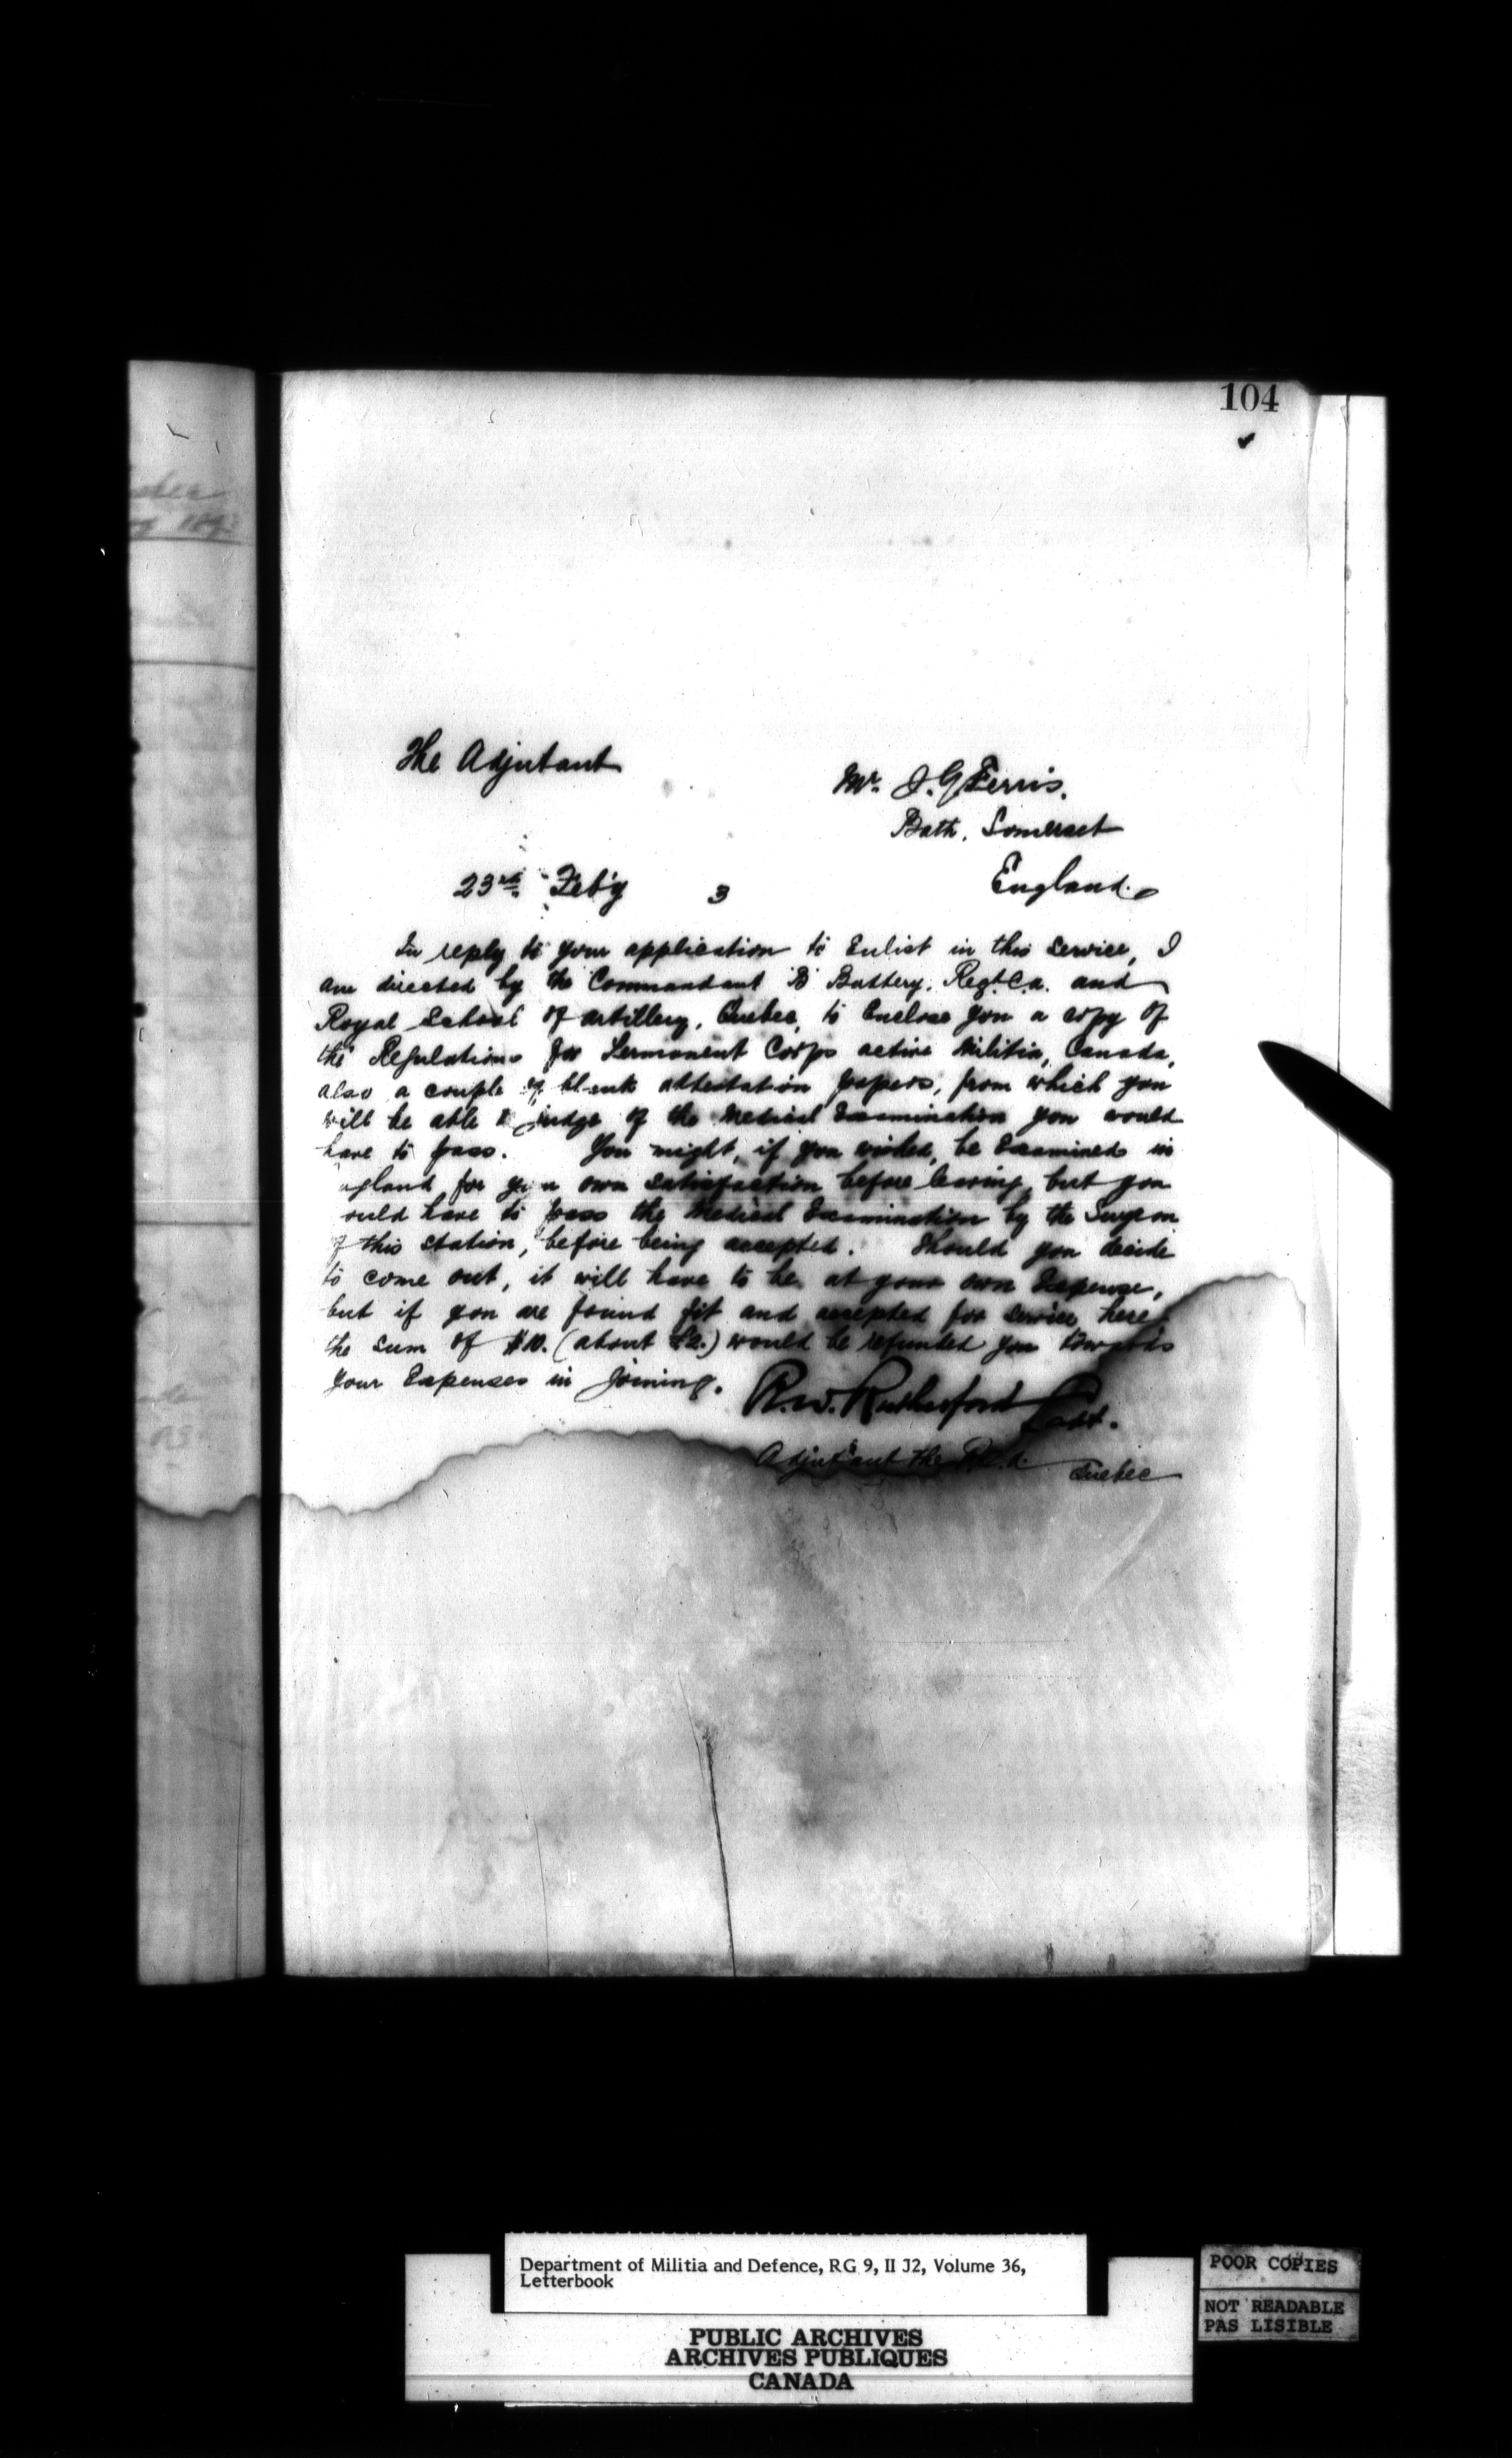 104
The Adjutant
Mr. J. G. Ferris.
Bath, Somerset
England.
23rd Feb'y 3
In reply to your application to Enlist in this Service, I
am directed by the Commandant "B" Battery, Regt. C.A. and
Royal School of Artillery, Quebec, to Enclose you a copy of
the Regulations for Permanent Corps active Militia, Canada,
also a couple of blank attestation papers, from which you
will be able to judge of the Medical Examination you would
have to pass. You might, if you wished, be Examined in
ngland for your own satisfaction before leaving, but you
ould have to pass the Medical Examination by the Surgeon
of this station, before being accepted. Should you decide
to come out, it will have to be at your own Expense,
but if you are found fit and accepted for service here
the sum of $10. (about £2.) would be refunded you towards
your Expenses in joining.
R. W. Rutherford Capt.
Adjutant the R.C.A. Quebec
Department of Militia and Defence, RG 9, II J2, Volume 36,
Letterbook
PUBLIC ARCHIVES
ARCHIVES PUBLIQUES
CANADA
POOR COPIES
NOT READABLE
PAS LISIBLE